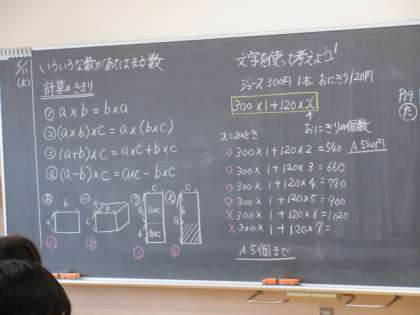 6/11
(木)
いろいろな数があてはまる数
計算のきまり
① a×b=b×a
② (a×b)×c=a×(b×c)
③ (a+b)×c=a×c+b×c
④ (a-b)×c=a×c-b×c
b
c
c
a×c
b×c
文字を使って考えよう
ジュース300円 1本 おにぎり120円
300×1+120×x
おにぎりの個数
x=2のとき
○ 300×1+120×2=540 A 540円
○ 300×1+120×3=660
○ 300×1+120×4=780
○ 300×1+120×5=900
× 300×1+120×6=1020
× 300×1+120×7=
A 5個まで
P19